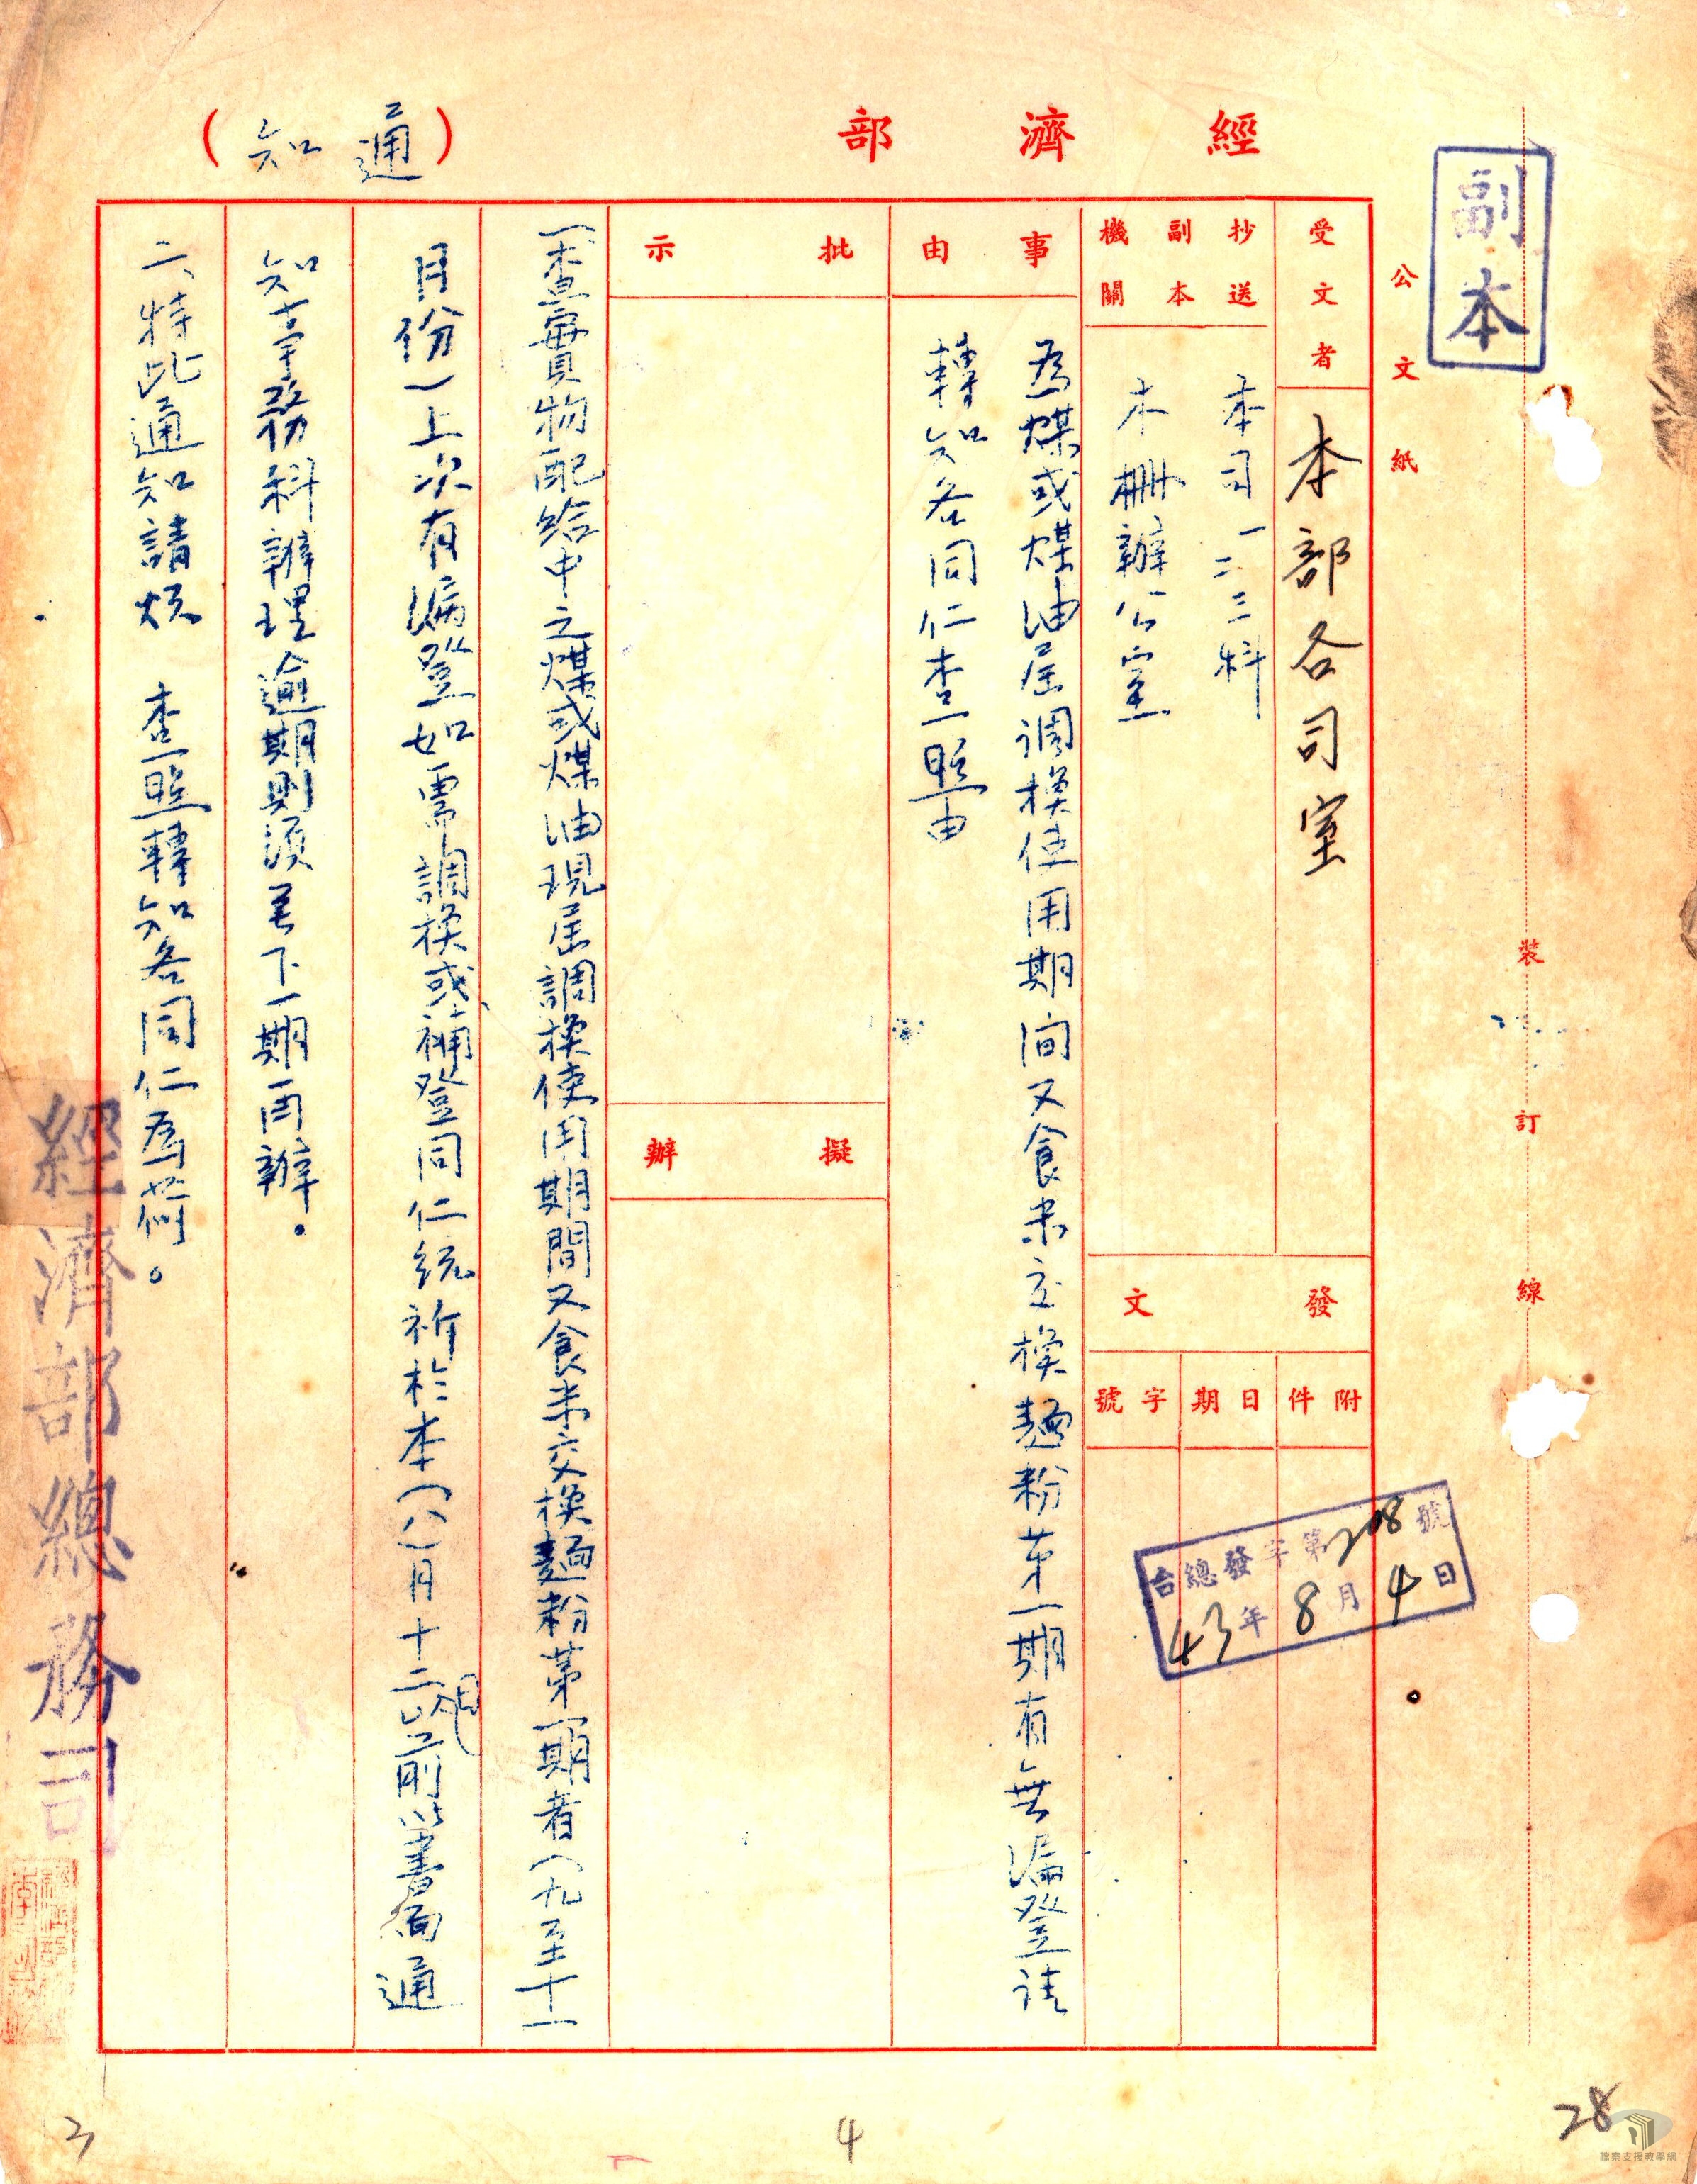 副本
公文紙
經濟部
(通知)
受文者
本部各司室
抄送副本機關
本司一二三科
木柵辦公室
發文
附件
日期
字號
台總發字第208號
43年8月4日
事由
為煤或煤油屆調換使用期间又食米交换麵粉苐一期有無漏登请
轉知各同仁查照由
批示
擬辦
一、查實物配給中之煤或煤油現屆調換使用期間又食米交換麵粉第一期者(九至十一
月份)上次有漏登如需調换或補登同仁統祈於本(八)月十二日以前以書面通
知事務科辦理逾期則須至下一期再辦。
二、特此通知請煩 查照轉知各同仁為荷。
經濟部總務司
裝訂線
28
4
3
檔案支援教學網